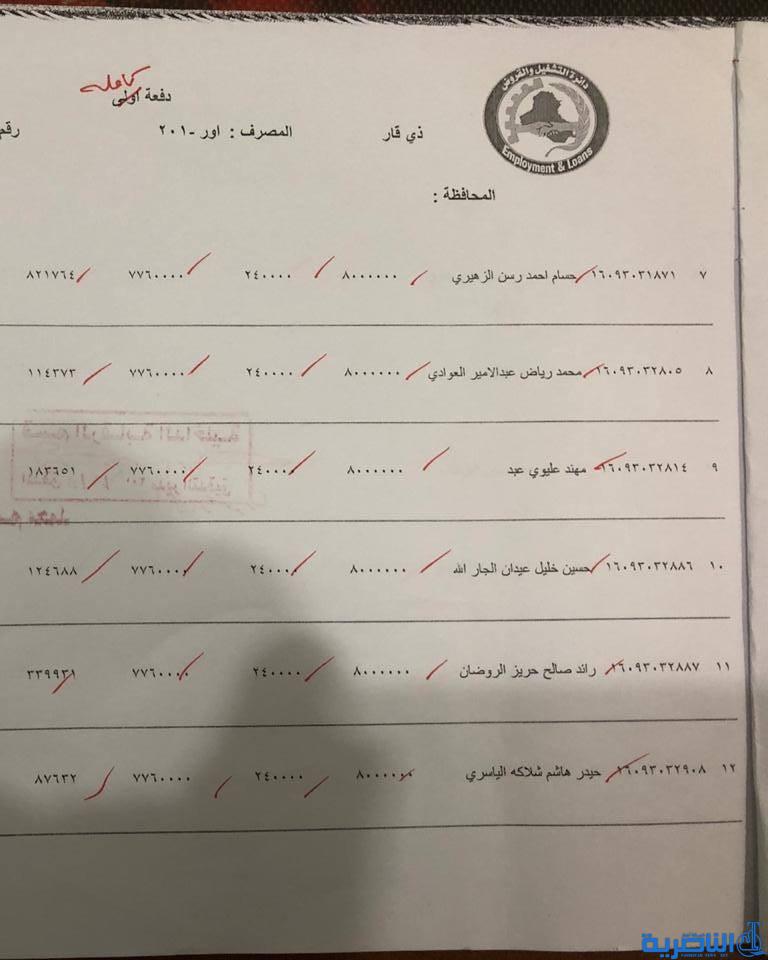 دائرة التشغيل والقروض
Employment & Loans
كامله
دفعة اولى
ذي قار المصرف : اور -٢٠١ رقم
المحافظة :
٧ ١٦٠٩٣٠٣١٨٧١ حسام احمد رسن الزهيري ٨٠٠٠٠٠٠ ٢٤٠٠٠٠ ٧٧٦٠٠٠٠ ٨٢١٧٦٤
٨ ١٦٠٩٣٠٣٢٨٠٥ محمد رياض عبدالامير العوادي ٨٠٠٠٠٠٠ ٢٤٠٠٠٠ ٧٧٦٠٠٠٠ ١١٤٣٧٣
٩ ١٦٠٩٣٠٣٢٨١٤ مهند عليوي عبد ٨٠٠٠٠٠٠ ٢٤٠٠٠٠ ٧٧٦٠٠٠٠ ١٨٣٦٥١
١٠ ١٦٠٩٣٠٣٢٨٨٦ حسين خليل عيدان الجار الله ٨٠٠٠٠٠٠ ٢٤٠٠٠٠ ٧٧٦٠٠٠٠ ١٢٤٦٨٨
١١ ١٦٠٩٣٠٣٢٨٨٧ رائد صالح حريز الروضان ٨٠٠٠٠٠٠ ٢٤٠٠٠٠ ٧٧٦٠٠٠٠ ٣٣٩٩٣١
١٢ ١٦٠٩٣٠٣٢٩٠٨ حيدر هاشم شلاكه الياسري ٨٠٠٠٠٠٠ ٢٤٠٠٠٠ ٧٧٦٠٠٠٠ ٨٧٦٣٢
الناصرية